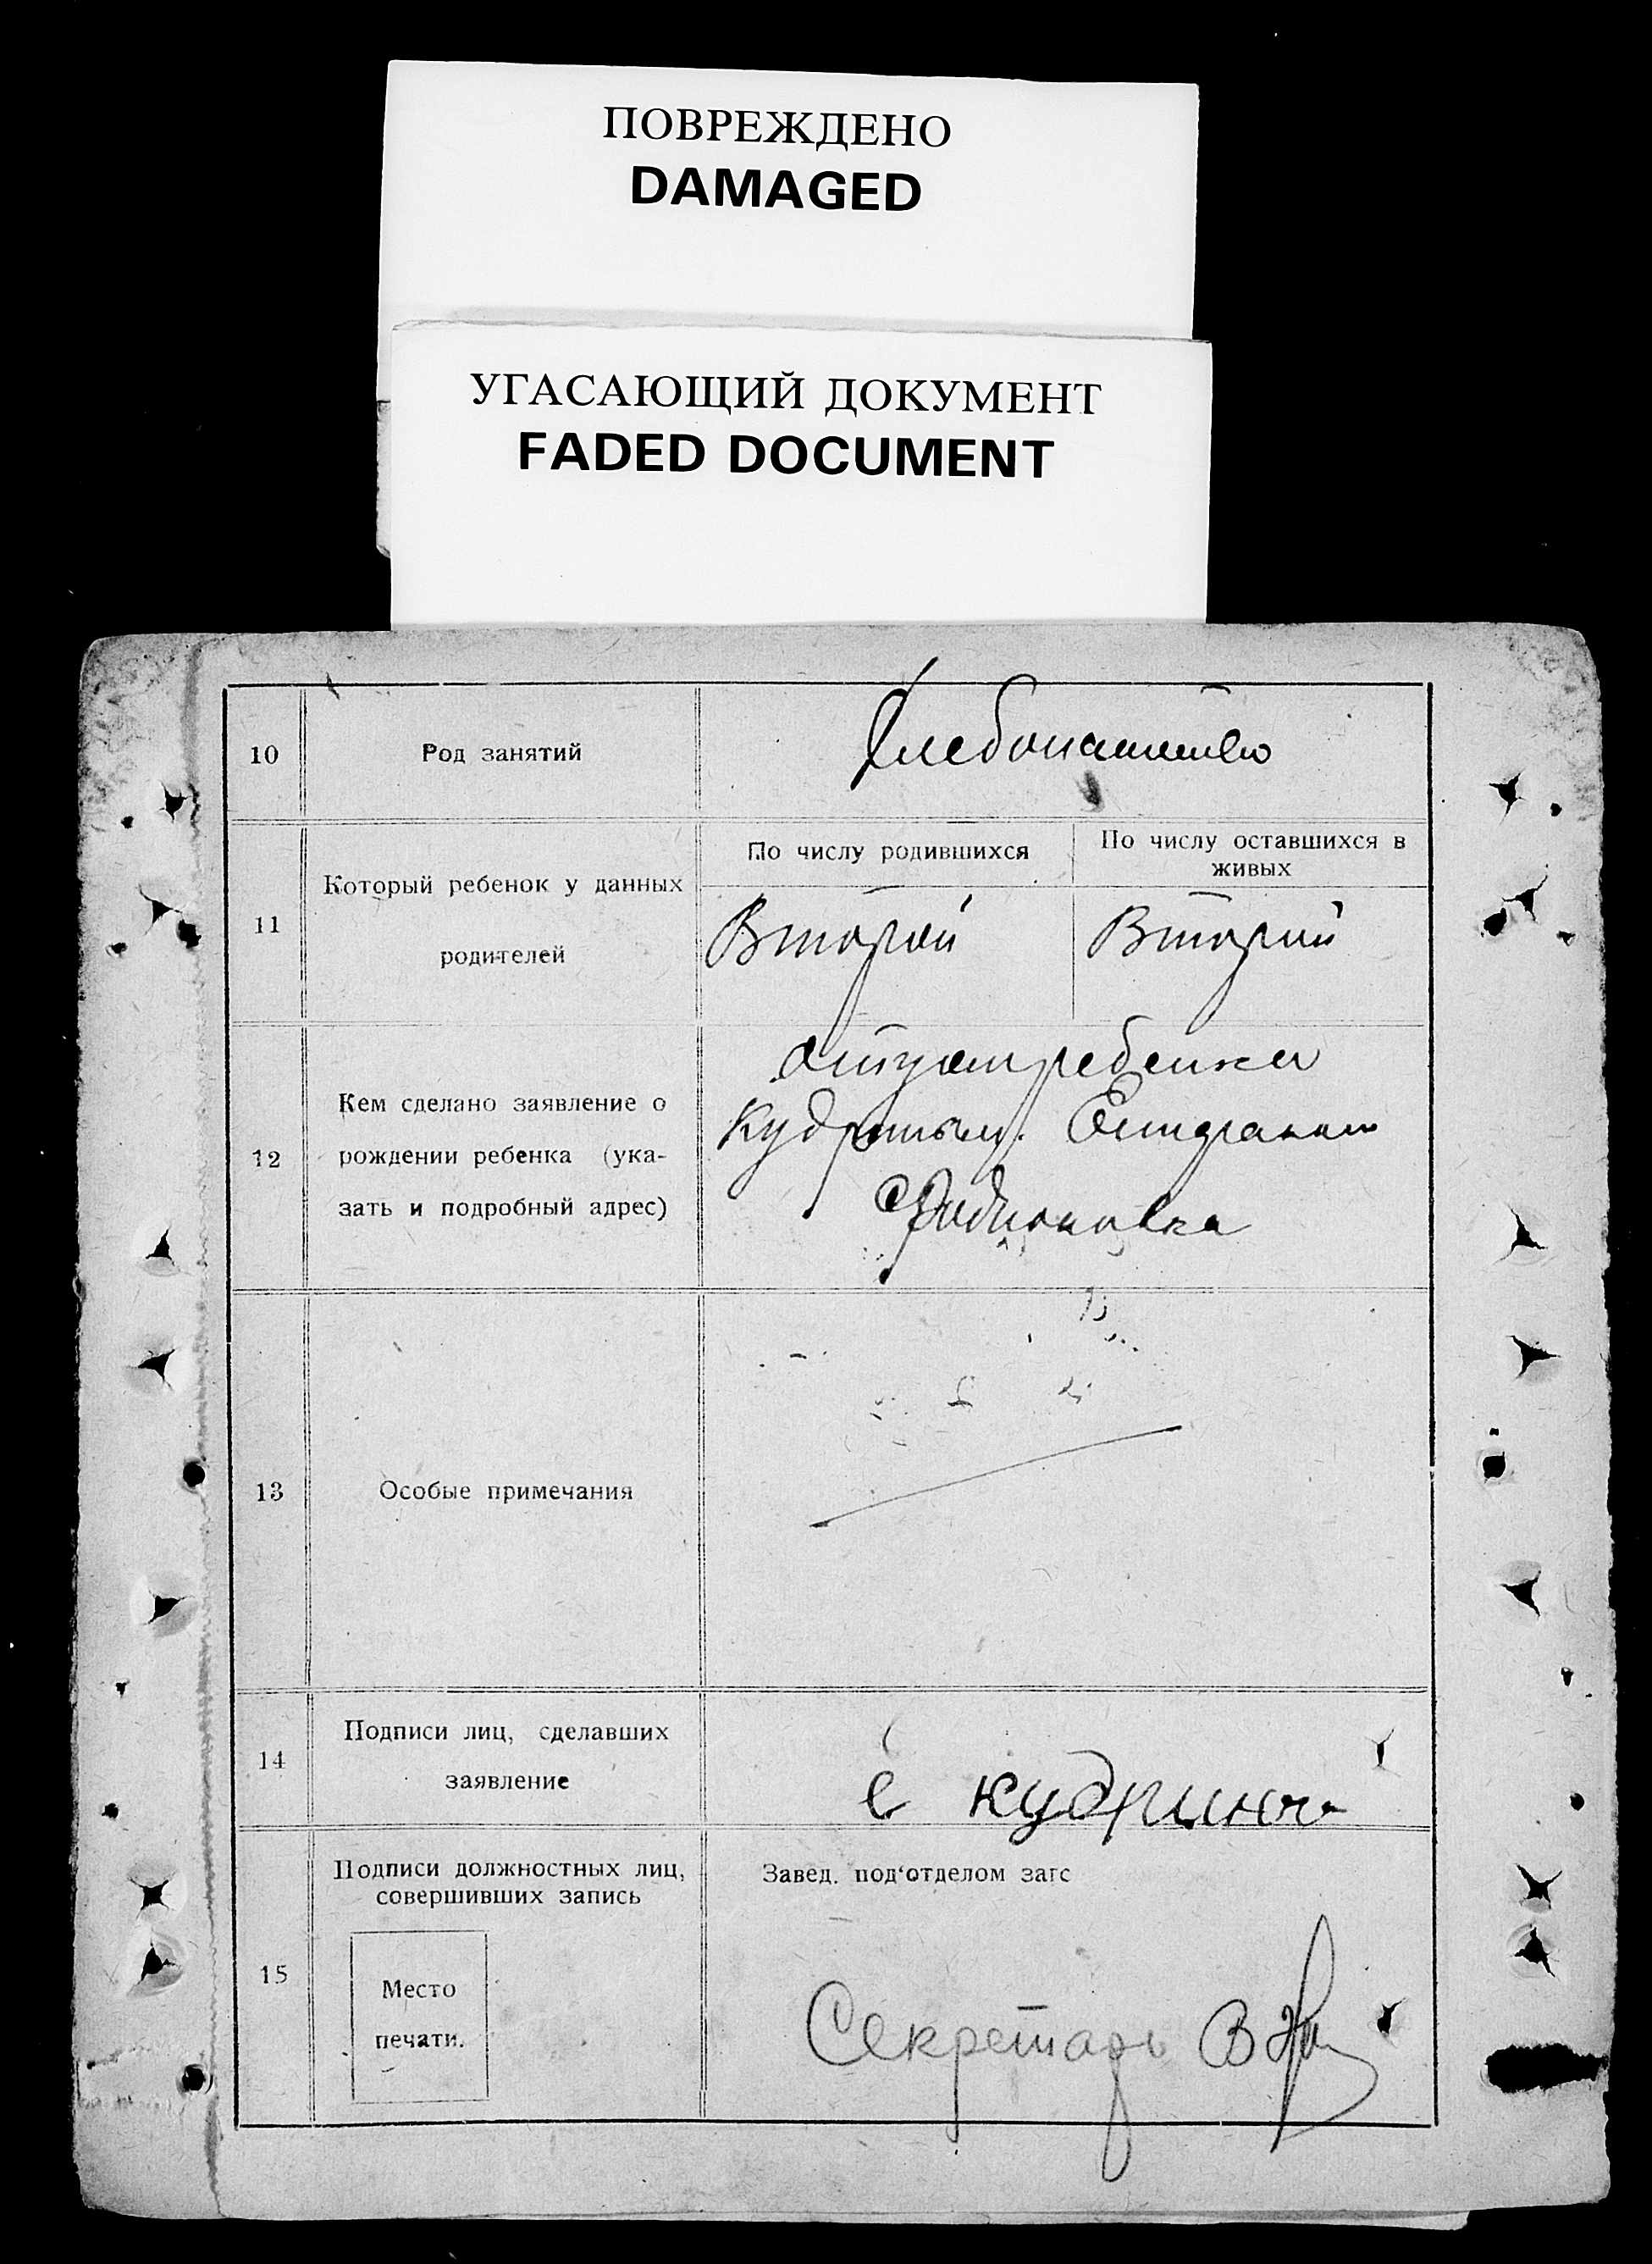 ПОВРЕЖДЕНО
DAMAGED
УГАСАЮЩИЙ ДОКУМЕНТ
FADED DOCUMENT
10 Род занятий Хлебопашество
11 Который ребенок у данных родителей
По числу родившихся
По числу оставшихся в живых
Второй Второй
12 Кем сделано заявление о
рождении ребенка (ука-
зать и подробный адрес)
отцом ребенка
Кудриным
Родионовка
13 Особые примечания
14 Подписи лиц, сделавших
заявление
е кудрин
15 Подписи должностных лиц,
совершивших запись
Завед. под‘отделом загс
Место
печати.
Секретарь В